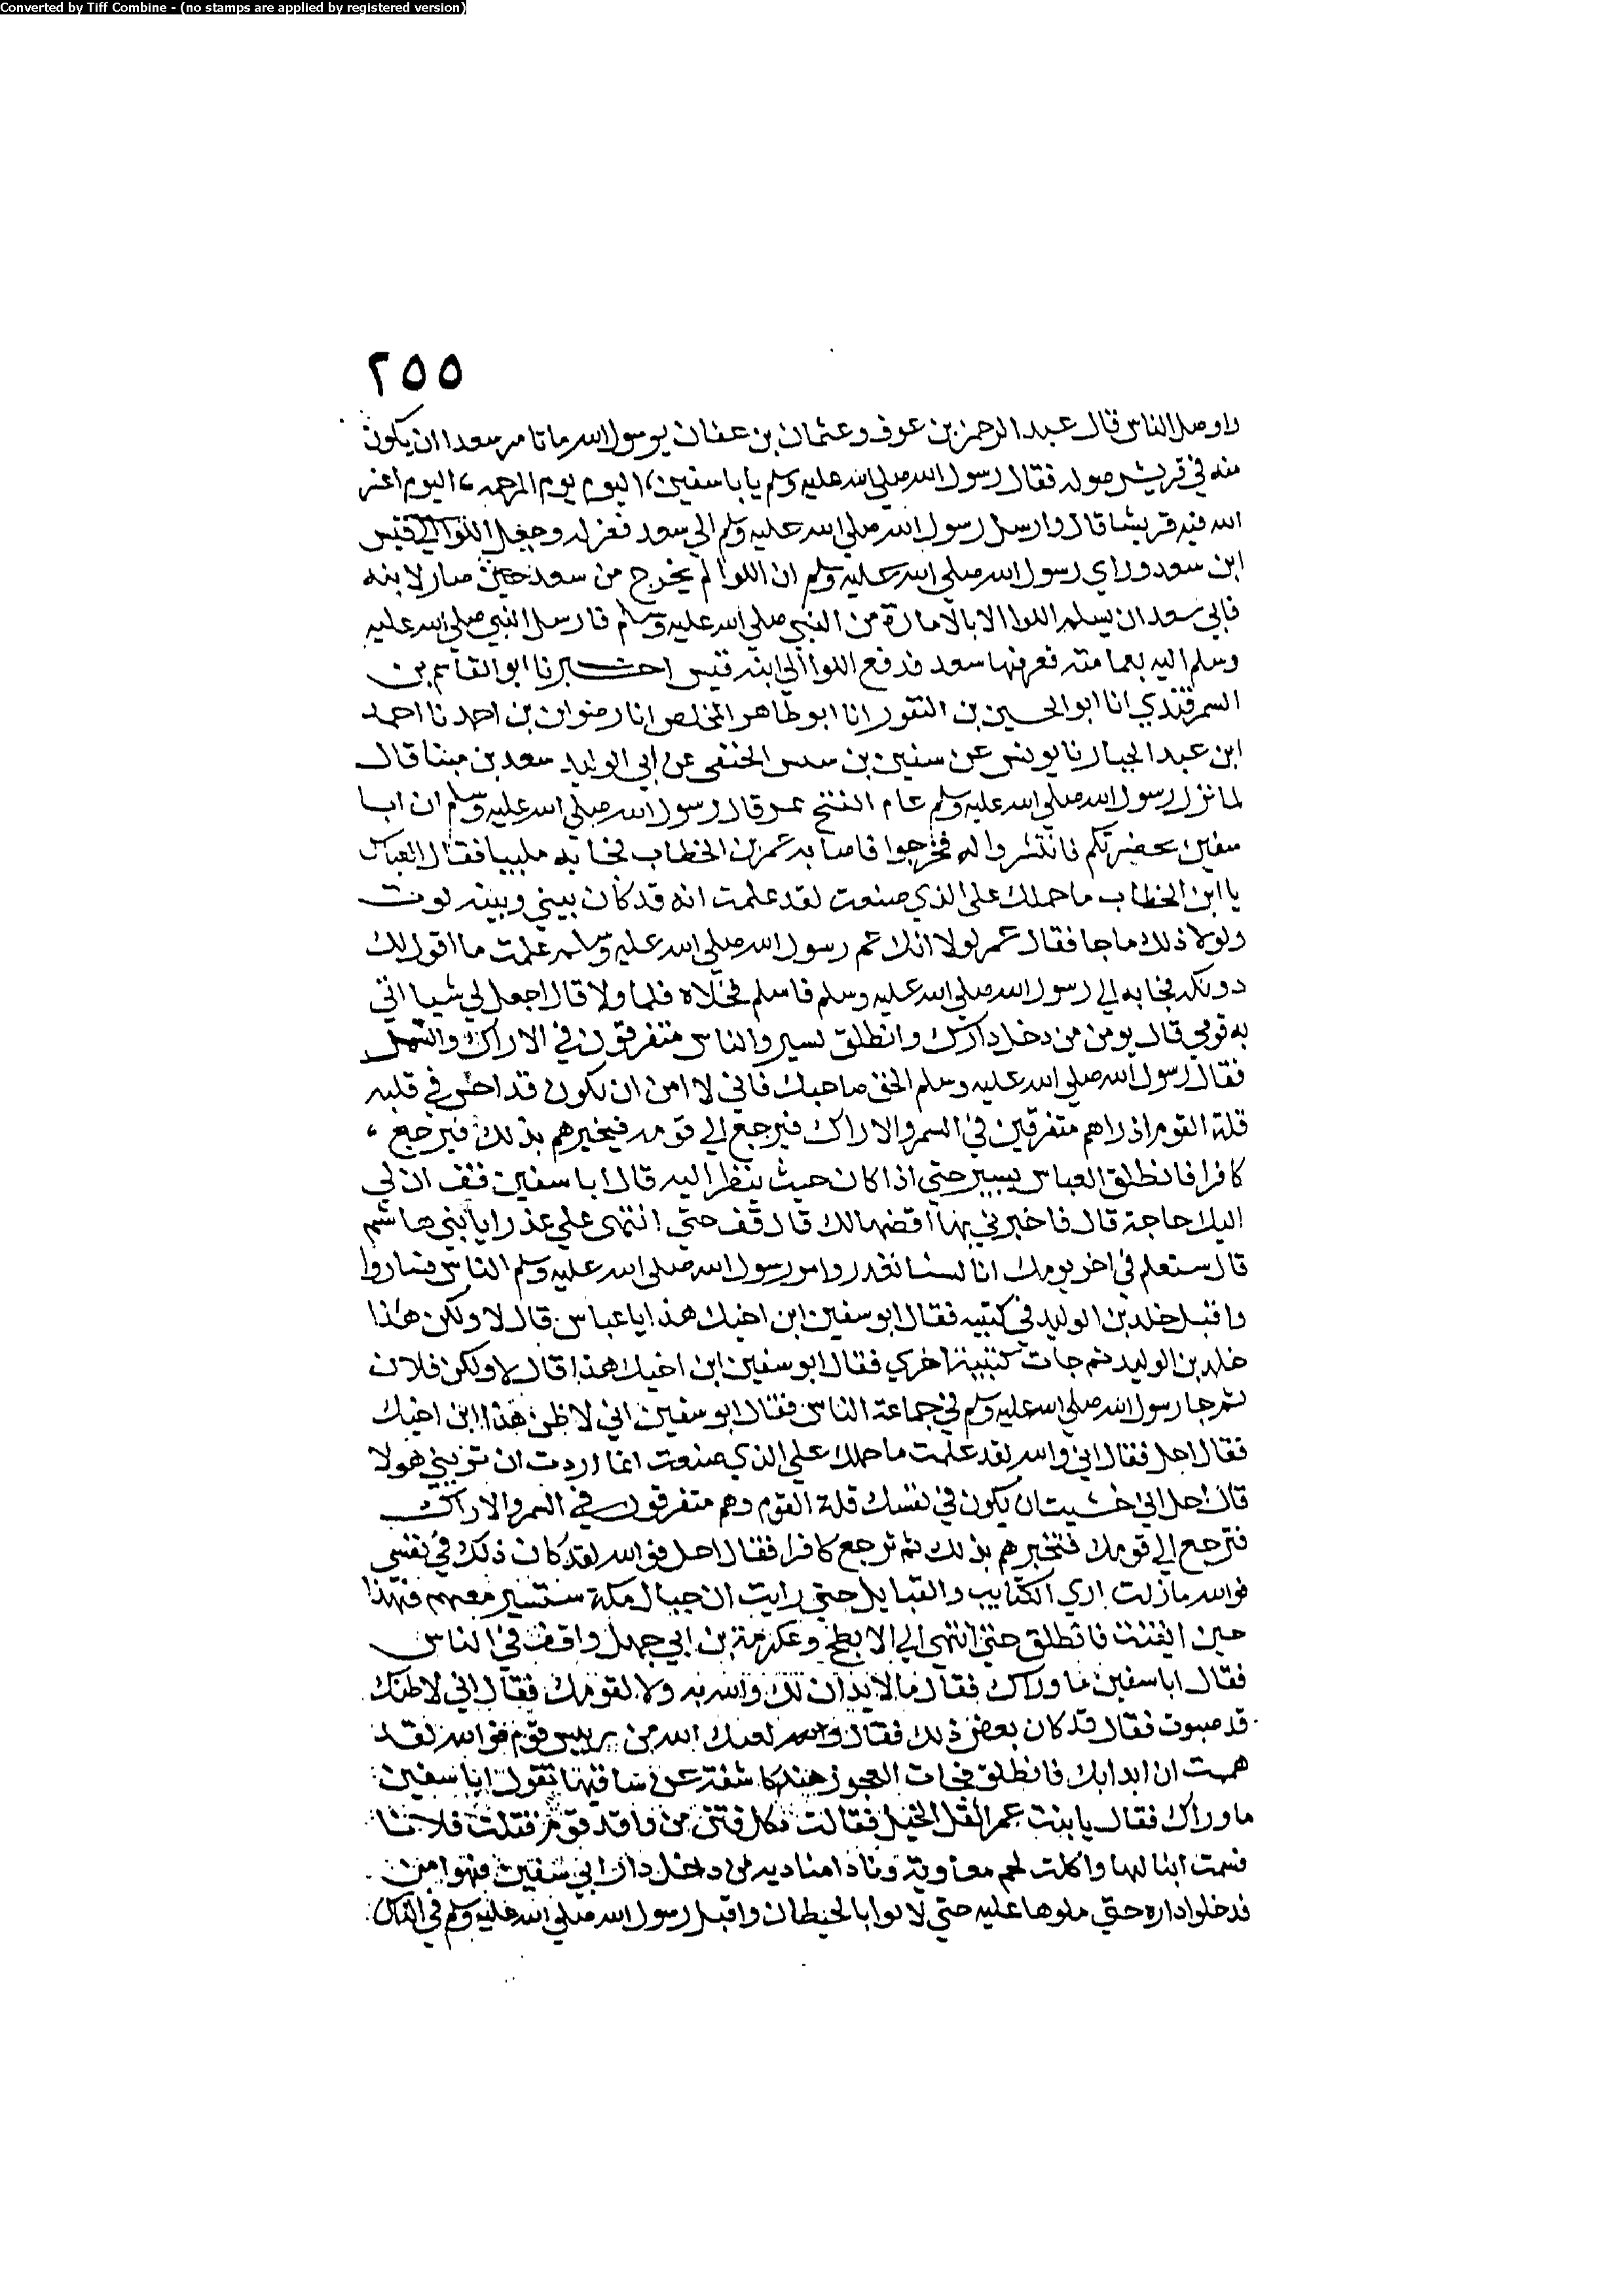 Converted by Tiff Combine - (no stamps are applied by registered version)
٢٥٥
واوصل الناس قال عبد الرحمن بن عوف وعثمان بن عفان يرسول الله ما تامر سعدا ان يكون
منه في قريش صوله فقال رسول الله صلي الله عليه وسلم يا با سفين اليوم يوم المرحمه اليوم اعز
الله فيه قريشا قال وارسل رسول الله صلي الله عليه وسلم الي سعد فعزله وجعل اللوا الي قيس
ابن سعد وراي رسول الله صلي الله عليه وسلم ان اللوا لم يخرج من سعد حين صار لابنه
فابي سعد ان يسلم اللوا الا بالامارة من النبي صلي الله عليه وسلم فارسل النبي صلي الله عليه
وسلم اليه بعمامته فعرفها سعد فدفع اللوا الي ابنه قيس اخبرنا ابو القاسم بن
السمرقندي انا ابو الحسين بن النقور انا ابو طاهر المخلص انا رضوان بن احمد نا احمد
ابن عبد الجبار نا يونس عن سفين بن الحنفي عن ابي الوليد سعد بن مينا قال
لما نزل رسول الله صلي الله عليه وسلم عام الفتح قال رسول الله صلي الله عليه وسلم ان ابا
سفين بحضرتكم فانتشروا له فخرجوا فاصابه عمر بن الخطاب فجا به ملببا فقال العباس
يا ابن الخطاب ما حملك علي الذي صنعت لقد علمت انه قد كان بيني وبينه لوث
ولولا ذلك ما جا فقال عمر لولا انك عم رسول الله صلي الله عليه وسلم علمت ما اقول لك
دونكه فجا به الي رسول الله صلي الله عليه وسلم فاسلم فخلاه فلما ولا قال اجعل لي شيا اتي
به قومي قال يومن من دخل دارك وانطلق يسير والناس متفرقون في الاراك والسمر
فقال رسول الله صلي الله عليه وسلم الحق صاحبك فاني لا امن ان يكون قد في قلبه
قلة القوم اذ راهم متفرقين في السمر والاراك فيرجع الي قومه فيخبرهم بذلك فيرجع
كافرا فانطلق العباس يسير حتي اذا كان حيث ينظر اليه قال ابا سفين فقف ان لي
اليك حاجة قال فاخبرني بها اقضها لك قال قف حتي انتهى علي عذرا يا بني هاشم
قال ستعلم في اخر يومك انا لسنا نغدر وامر رسول الله صلي الله عليه وسلم الناس فساروا
واقبل خلد بن الوليد في كتيبه فقال ابو سفين ابن اخيك هذا يا عباس قال لا ولكن هذا
خلد بن الوليد ثم جات كتيبة اخري فقال ابو سفين ابن اخيك هذا قال لا ولكن فلان
ثم جا رسول الله صلي الله عليه وسلم في جماعة الناس فقال ابو سفين اني لاظن هذا ابن اخيك
فقال اجل فقال اني والله لقد علمت ما حملك علي الذي صنعت انما اردت ان تريني هولا
قال اجل اني خشيت ان يكون في نفسك قلة القوم وهم متفرقون في السمر والاراك
فترجع الي قومك فتخبرهم بذلك ثم ترجع كافرا فقال اجل فوالله لقد كان ذلك في نفسي
فوالله ما زلت اري الكتايب والقبايل حتي رايت ان جبال مكة ستسير معهم فهذا
حين ايقنت فانطلق حتي انتهي الي الابطح وعكرمة بن ابي جهل واقف في الناس
فقال ابا سفين ما وراك فقال ما لا يدان لك والله به ولا لقومك فقال اني لاظنك
قد صبوت فقال قد كان بعض ذلك فقال والله لعنك الله من رييس قوم فوالله لقد
هممت ان ابدا بك فانطلق فجات العجوز هند كاشفة عن ساقيها تقول ابا سفين
ما وراك فقال يا بنت الخيل فقالت من وافد قوم قتلت فلانا
فسمت ابنا لها واكلت لحم معاوية ونادا مناديه من دخل دار ابي سفين فهوا امن
فدخلوا داره حتي ملوها عليه حتي لاذوا بالحيطان واقبل رسول الله صلي الله عليه وسلم في